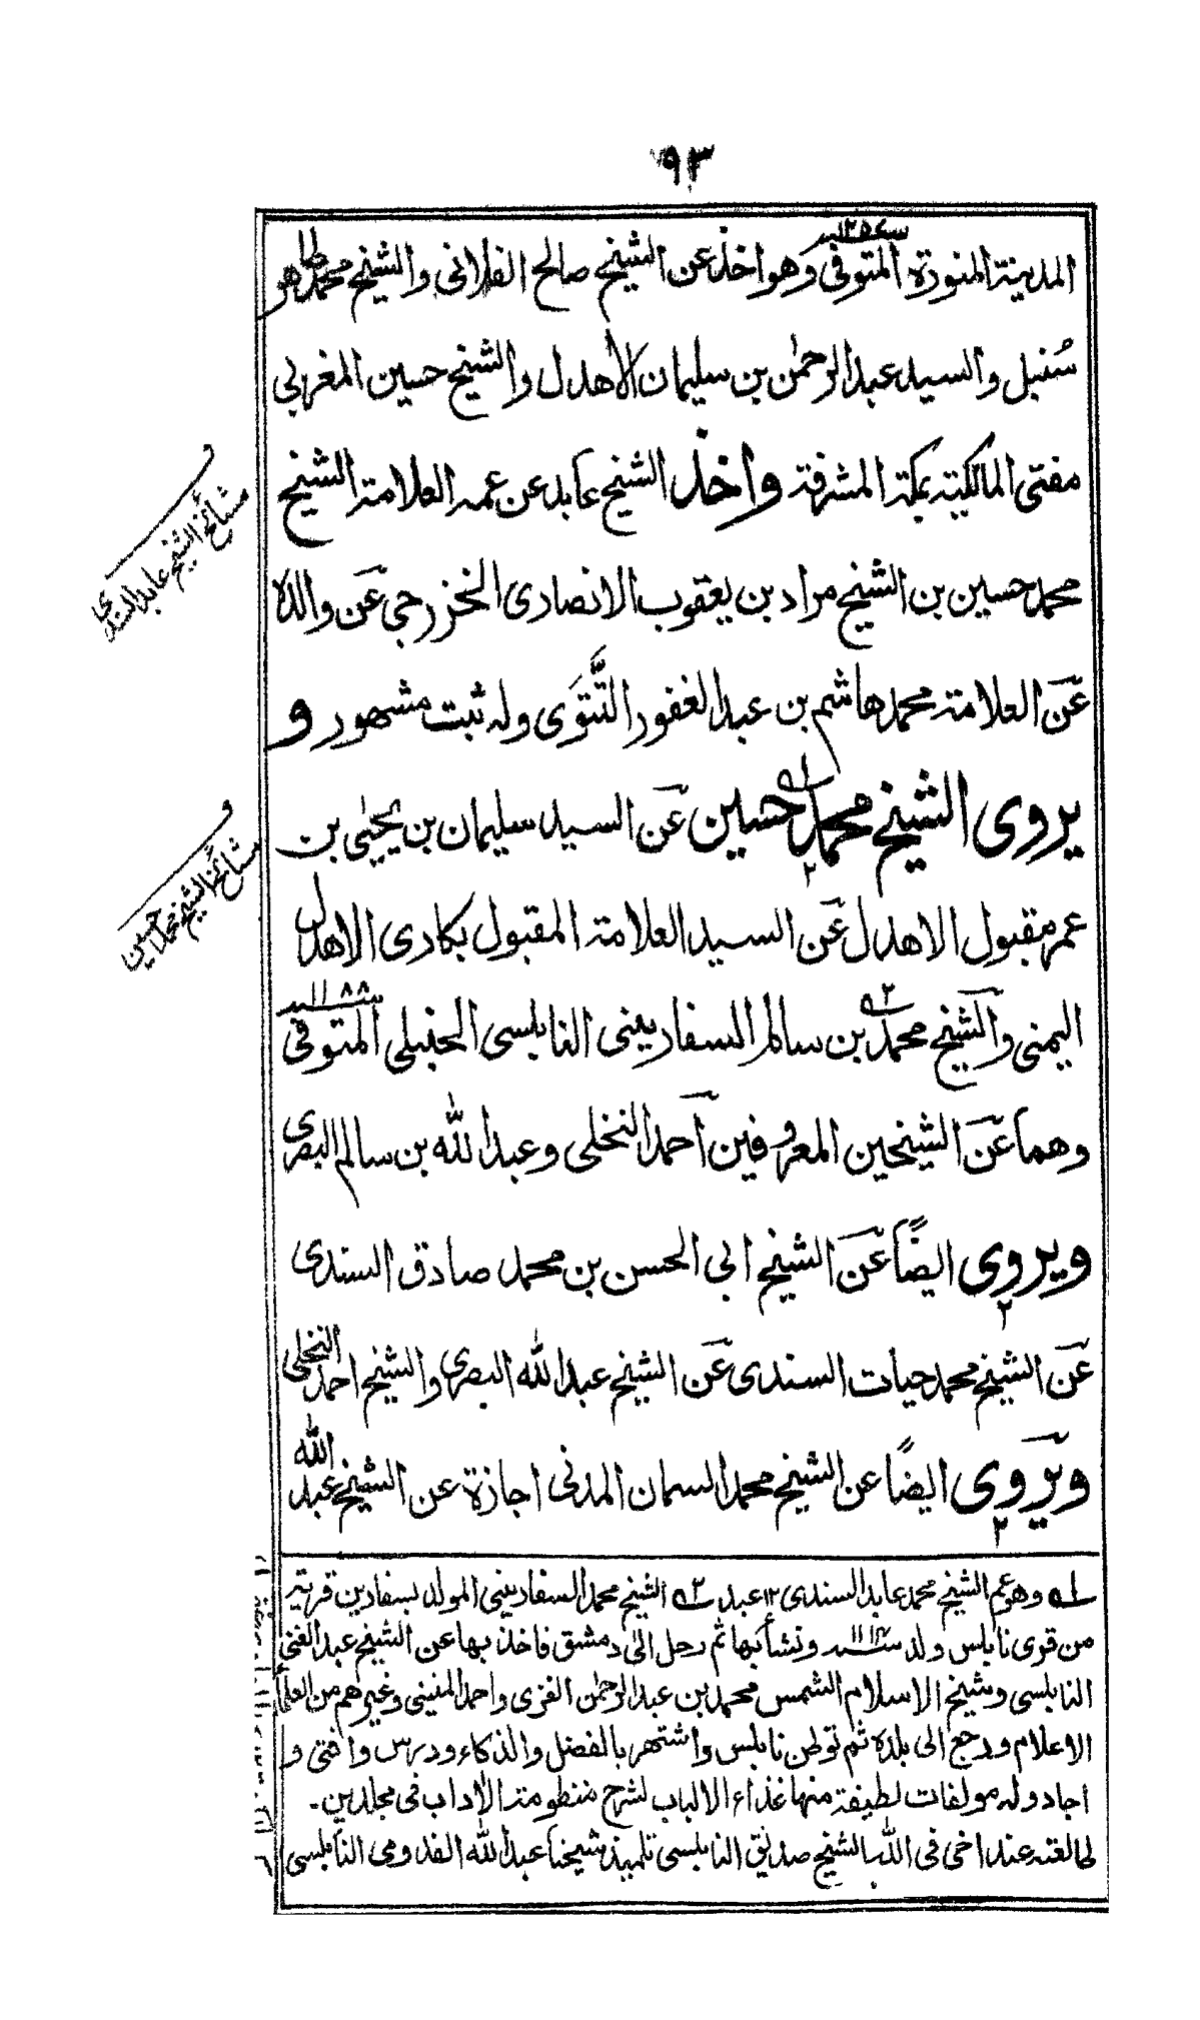 ٩٣
المدينة المنورة المتوفى سنة ١٢٥٧ وهو اخذ عن الشيخ صالح الفلانى والشيخ محمد طاهر
سُنبل والسيد عبد الرحمٰن بن سليمان الأهدل والشيخ حسين المغربى
مفتى المالكية بمكة المشرفة واخذ الشيخ عابد عن عمه العلامة الشيخ
محمد حسين بن الشيخ مراد بن يعقوب الانصارى الخزرجى عن والده
عن العلامة محمد هاشم بن عبد الغفور التَّتَوى وله ثبت مشهور و
يروى الشيخ محمد حسين عن السيد سليمان بن يحيٰى بن
عمر مقبول الاهدل عن السيد العلامة المقبول بكارى الاهدل
اليمنى والشيخ محمد بن سالم السفارينى النابلسى الحنبلى المتوفى سنة ١١٨٨
وهما عن الشيخين المعروفين احمد النخلى وعبد الله بن سالم البصرى
ويروى ايضًا عن الشيخ ابى الحسن بن محمد صادق السندى
عن الشيخ محمد حيات السندى عن الشيخ عبد الله البصرى والشيخ احمد النخلى
ويروى ايضًا عن الشيخ محمد السمان المدنى اجازة عن الشيخ عبد الله
مشائخ الشيخ عابد السندى
مشائخ الشيخ محمد حسين
له١ وهو عم الشيخ محمد عابد السندى ١٢ عبد له٢ الشيخ محمد السفارينى المولد بسفارين قرية
من قرى نابلس ولد سنة ١١١٤ ونشأ بها ثم رحل الى دمشق فاخذ بها عن الشيخ عبد الغنى
النابلسى وشيخ الاسلام الشمس محمد بن عبد الرحمٰن الغزى واحمد المنينى وغيرهم من العلمأ
الاعلام ورجع الى بلده ثم توطن نابلس واشتهر بالفضل والذكاء ودرس وافتى و
اجاد وله مولفات لطيفة منها غذاء الالباب لشرح منظومة الأداب فى مجلدين۔
طالعته عند اخى فى الله الشيخ صديق النابلسى تلميذ شيخنا عبد الله القدومى النابلسى